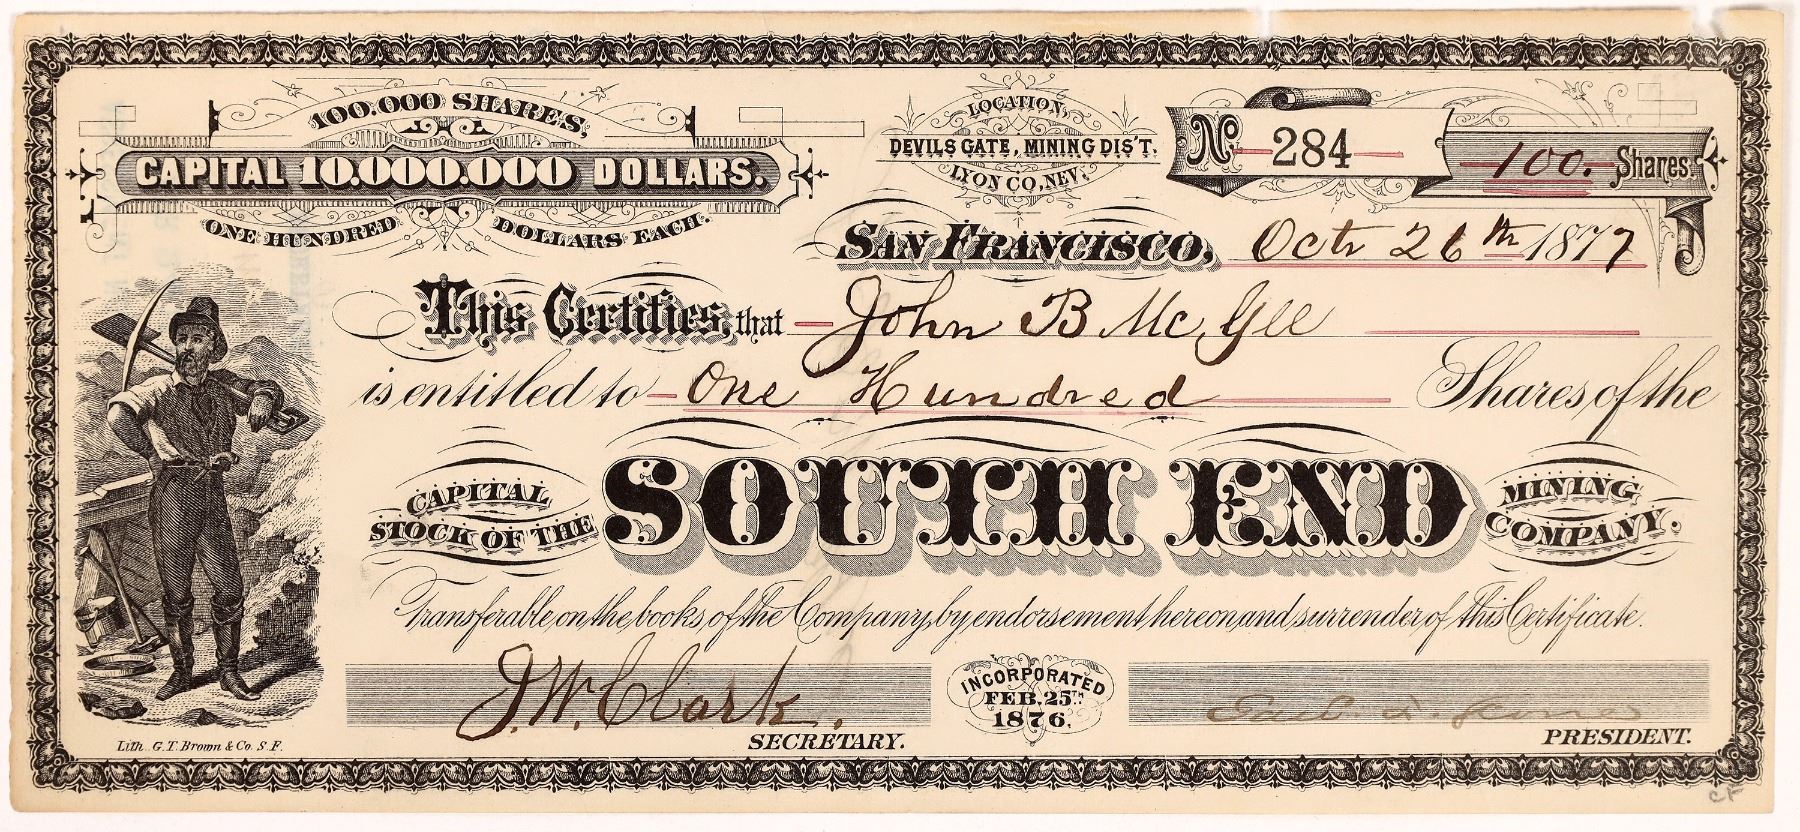 100.000 SHARES.
CAPITAL 10.000.000 DOLLARS.
ONE HUNDRED DOLLARS EACH.
LOCATION,
DEVILS GATE, MINING DIS'T.
LYON CO, NEV.
No 284 100. Shares.
SAN FRANCISCO, Octr 26th 1877
This Certifies, that John B McGee
is entitled to One Hundred Shares of the
CAPITAL STOCK OF THE SOUTH END MINING COMPANY.
Transferable on the books of the Company, by endorsement hereon and surrender of this Certificate.
J. W. Clark.
SECRETARY.
INCORPORATED
FEB. 25TH
1876.
PRESIDENT.
Lith. G.T. Brown & Co. S.F.
CF